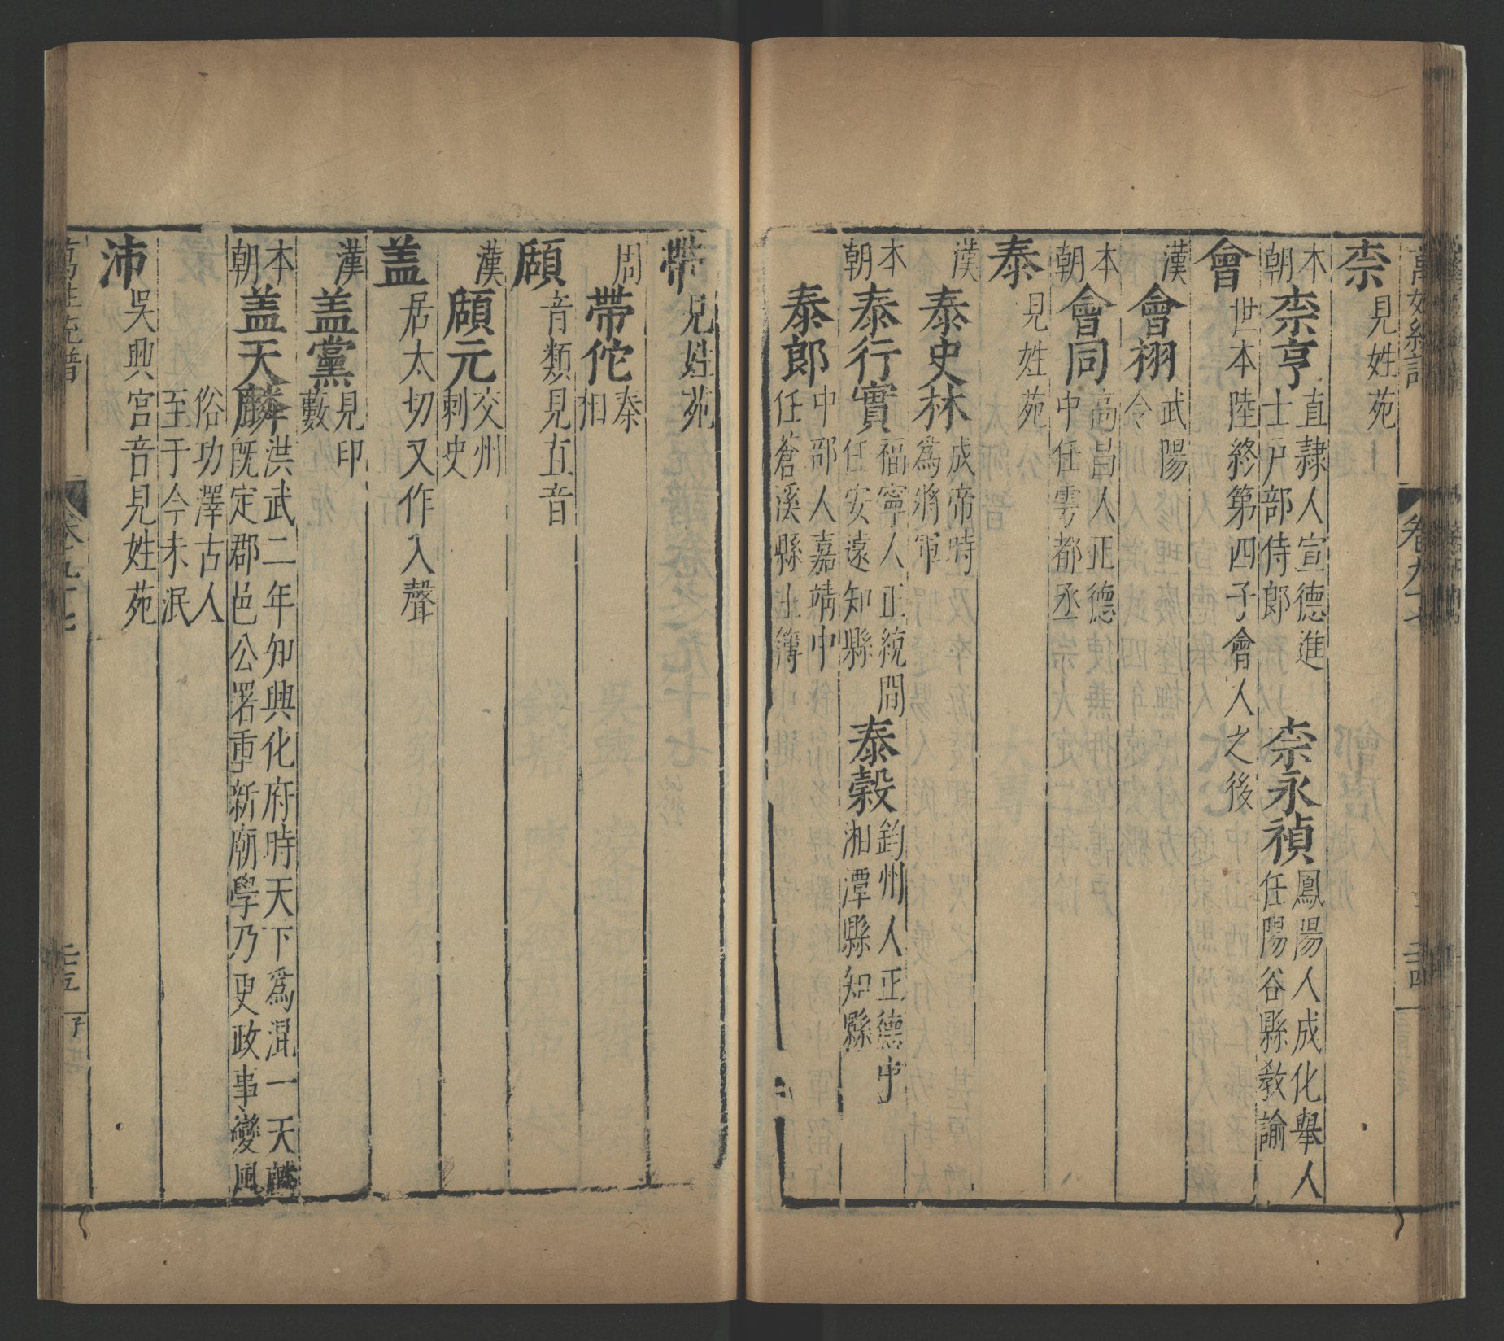 萬姓統譜 卷九十七
柰 見姓苑
本朝 柰亨 直隷人宣德進士戸部侍郎 柰永禎 鳳陽人成化舉人任陽谷縣教諭
會 世本陸終第四子會人之後
漢 會栩 武陽令
本朝 會同 高昌人正德中任雩都丞
泰 見姓苑
漢 泰史林 成帝時為將軍
本朝 泰行實 福寧人正統間任安遠知縣 泰穀 鈞州人正德中湘潭縣知縣
泰郎 中部人嘉靖中任蒼溪縣主簿
帶 見姓苑
周 帶佗 秦相
頋 音類見直音
漢 頋元 交州刺史
盖 居太切又作入聲
漢 盖黨 見印藪
本朝 盖天麟 洪武二年知興化府時天下為混一天麟既定郡邑公署重新廟學乃更政事變風
俗功澤古人至于今未泯
沛 吳興宮音見姓苑
萬姓統譜 卷九十七 二十五